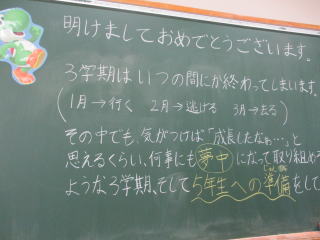 明けましておめでとうございます。
3学期はいつの間にか終わってしまいます。
(1月→行く 2月→逃げる 3月→去る)
その中でも、気がつけば「成長したなぁ…」と
思えるくらい、何事にも夢中になって取り組める
ような3学期、そして5年生への準備をして